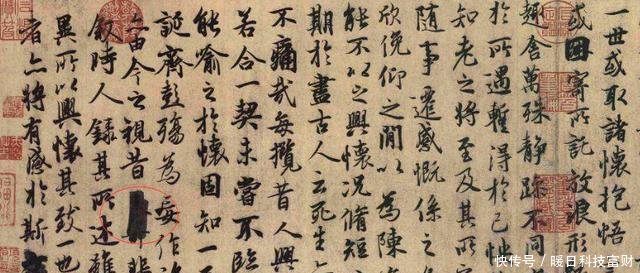 一世或取諸懷抱悟
或因寄所託放浪形
趣舍萬殊靜躁不同
於所遇蹔得於己怏
知老之將至及其所
隨事遷感慨係之
欣俛仰之閒以為陳
能不以之興懷況脩短
期於盡古人云死生
不痛哉每攬昔人興
若合一契未嘗不臨
能喻之於懷固知一
誕齊彭殤為妄作
亦由今之視昔
敘時人錄其所述雖
異所以興懷其致一也
者亦將有感於斯
快传号/暖日科技富财